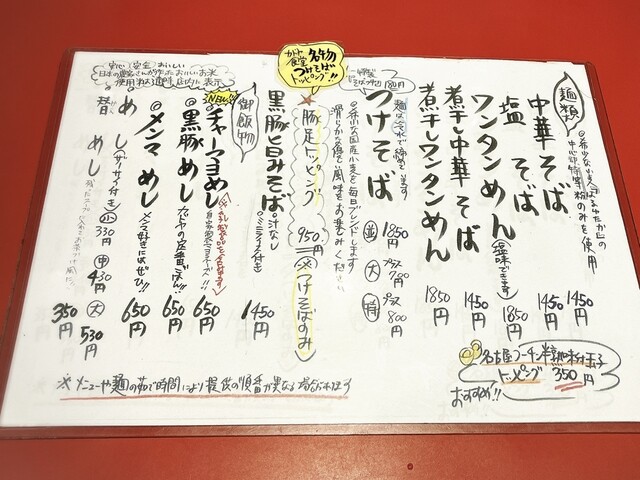 麺類
◎希少な小麦「はるゆたか」の
中心部特等粉のみを使用
中華そば 1450円
塩そば 1450円
ワンタンめん（塩味できます） 1850円
煮干し中華そば 1450円
煮干しワンタンめん 1850円
つけそば
並 1850円
大 プラス 700円
特 プラス 800円
麺は冷水で締めています
◎希少な国産小麦を毎日ブレンドします
滑らかな麺を風味をお楽しみください
食堂 名物
つけそば
トッピング!!
豚足トッピング 950円
※つけそばのみ
黒豚旨みそば 1450円
◎汁なし
◎ミニライス付き
御飯物
NEW!!
◎チャーマヨめし 650円
◎黒豚めし 650円
◎メンマめし 650円
メンマ好きにはぜひ!!
めし
小 330円
中 430円
大 530円
替めし 350円
安心 安全 おいしい
日本の農家さんが作ったおいしいお米
名古屋コーチン半熟味付玉子
トッピング 350円
おすすめ!!
※メニューや麺の茹で時間により提供の順番が異なる場合があります